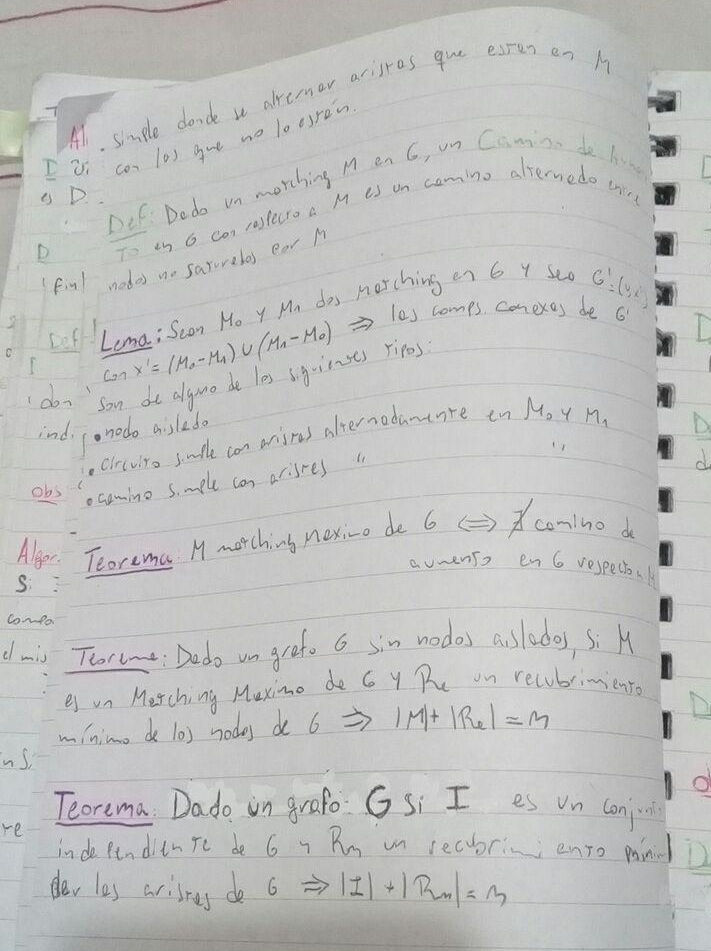 simple donde se alternan aristas que estan en M
con las que no lo están.
Def: Dado un matching M en G, un Camino de
TO en G con respecto a M es un camino alternado entre
nodos no saturados por M
Lema: Sean M₀ y M₁ dos matching en G y sea G'=(V,X')
con X' = (M₀-M₁) ∪ (M₁-M₀) ⇒ las comps. conexas de G'
son de alguno de los siguientes tipos:
• nodo aislado
• circuito simple con aristas alternadamente en M₀ y M₁
• camino simple con aristas " "
Teorema: M matching maximo de G ⇔ ∄ camino de
aumento en G respecto a M
Teorema: Dado un grafo G sin nodos aislados, si M
es un Matching Maximo de G y Re un recubrimiento
mínimo de los nodos de G ⇒ |M|+|Re|=n
Teorema: Dado un grafo G si I es un conjunto
independiente de G y Rn un recubrimiento mínim
de las aristas de G ⇒ |I|+|Rn|=n
Al
D
es D
D
Def
I
ind
Obs
Algor.
Si
el mis
re